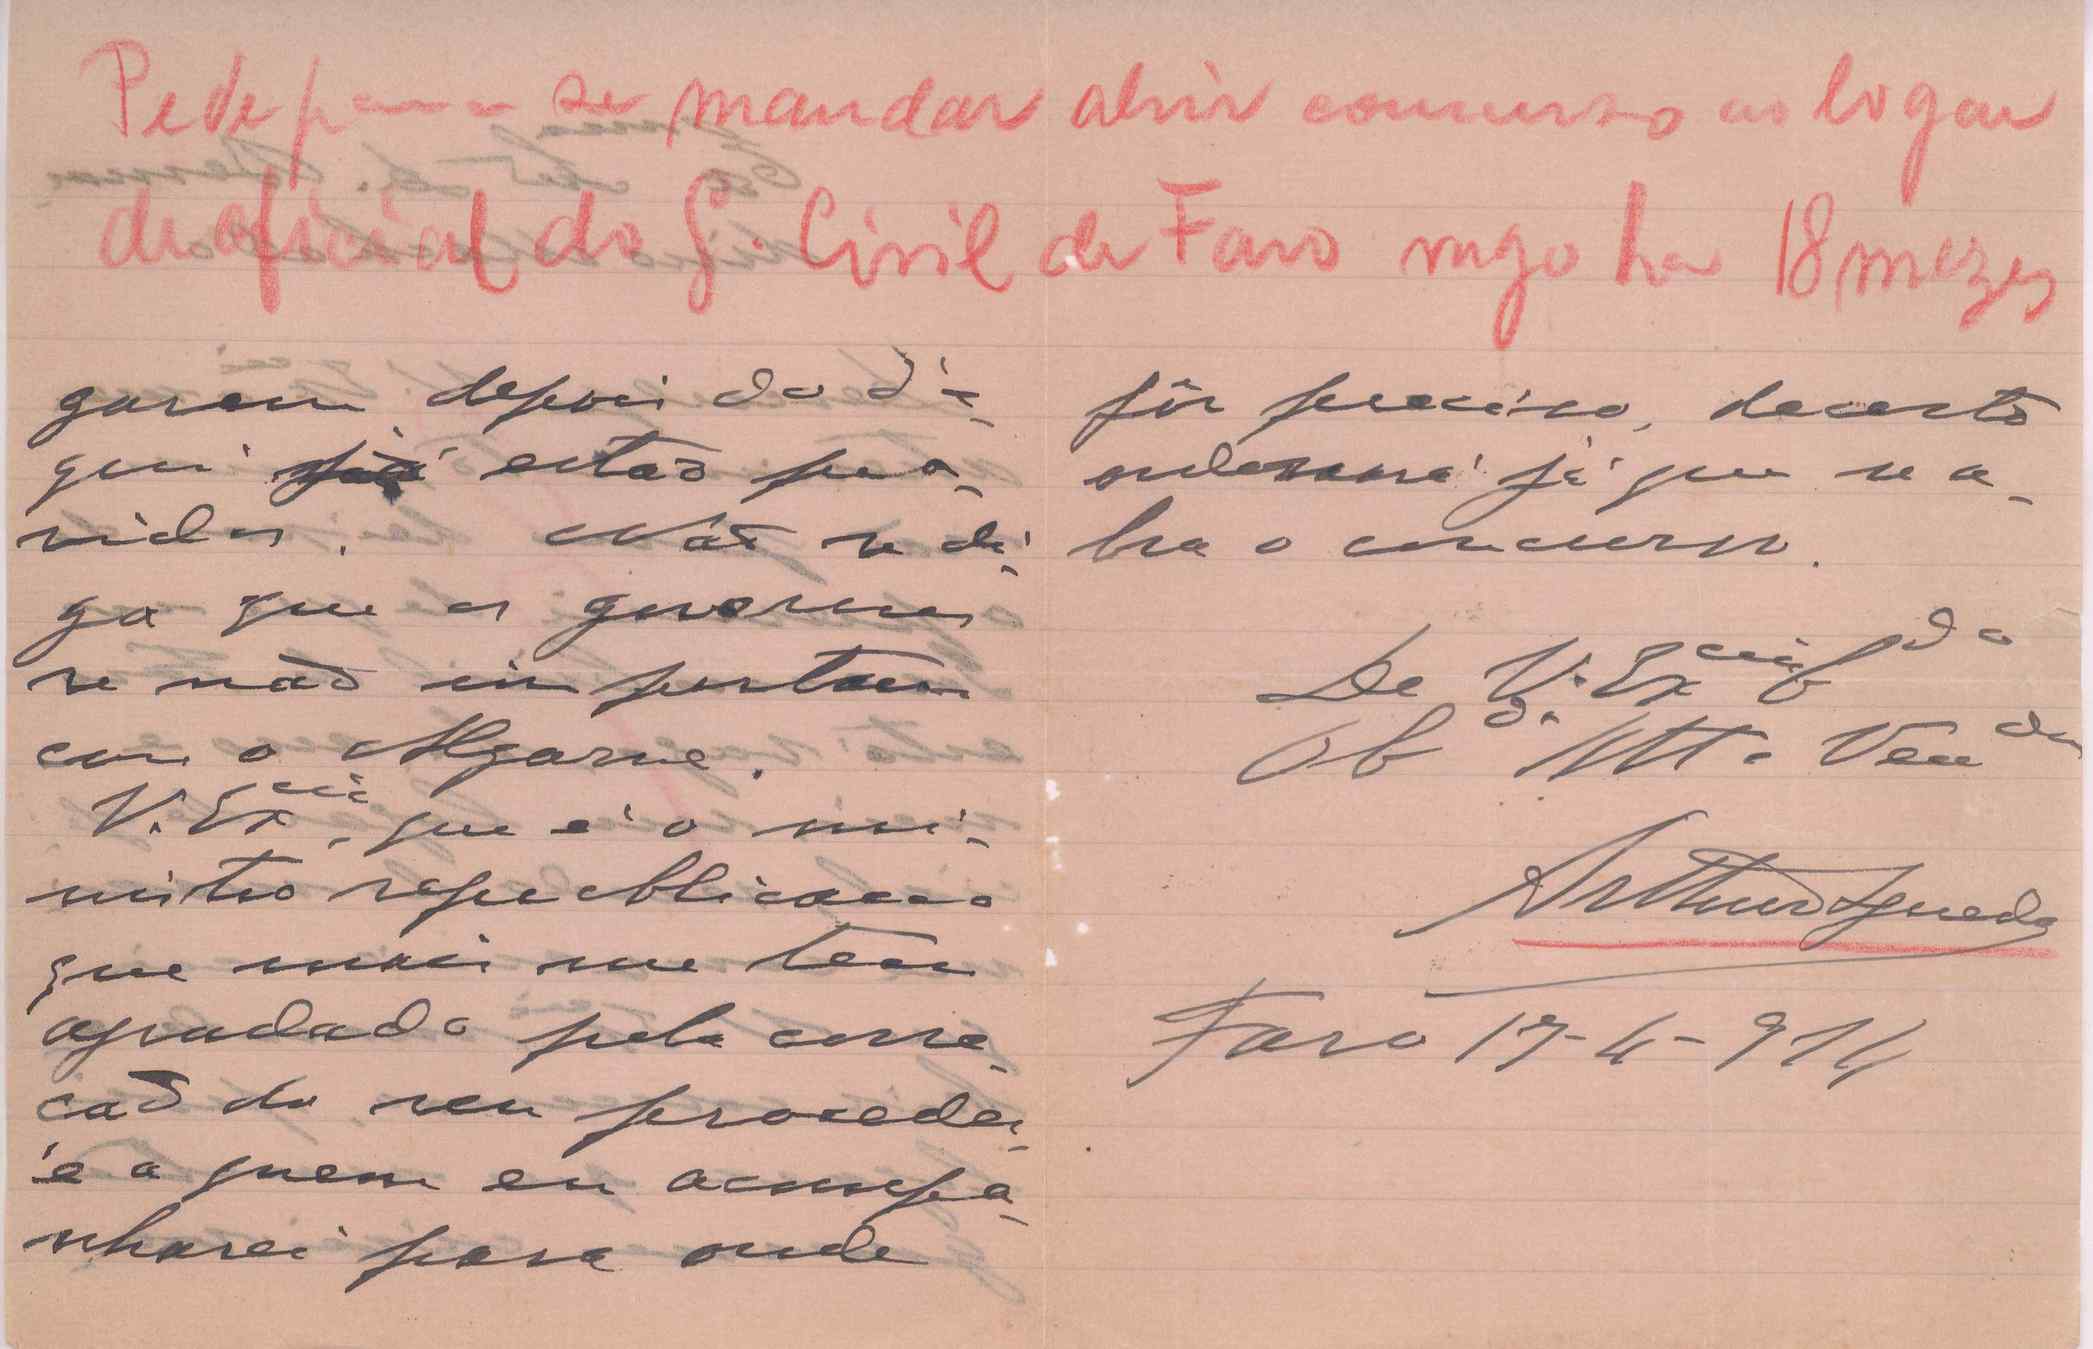 Pede para se mandar abrir concurso ao logar
de oficial do G. Civil de Faro vago ha 18 mezes
garem depois do d'a-
qui já estão pro-
vidos. Não se di-
ga que os governos
se não importam
com o Algarve.
V. Ex.cia, que é o mi-
nistro republicano
que mais me tem
agradado pela corre-
cão do seu proceder
e a quem eu acompa-
nharei para onde
fôr preciso, decerto
ordenará já que se a-
bra o concurso.
De V. Ex.cia
Ob.do Att.o Ven.dor
Arthur Agueda
Faro 17-4-914